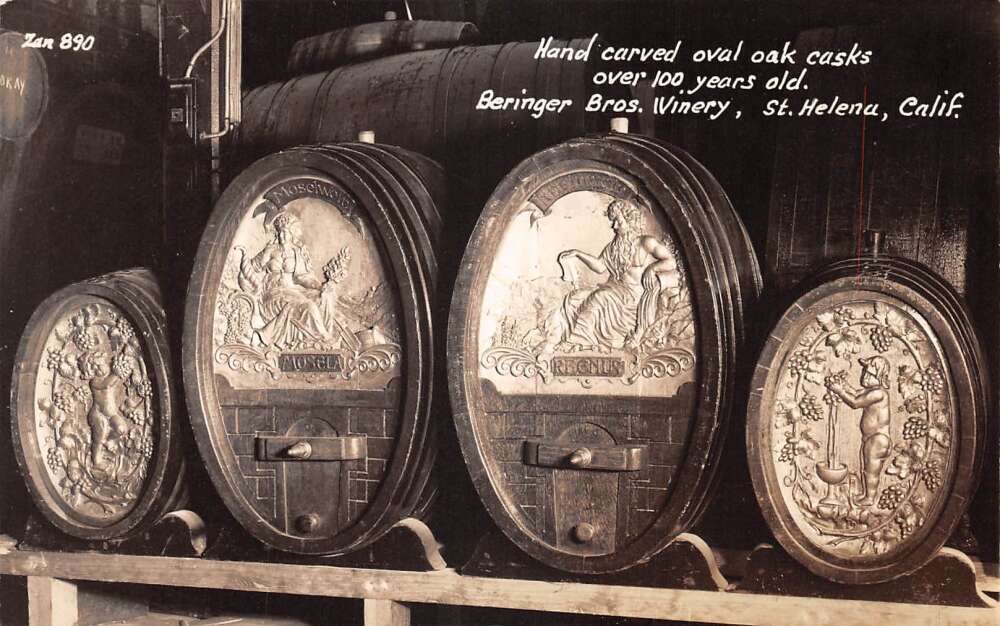 Zan 890
Hand carved oval oak casks
over 100 years old.
Beringer Bros. Winery, St. Helena, Calif.
OKAY
MOSELA